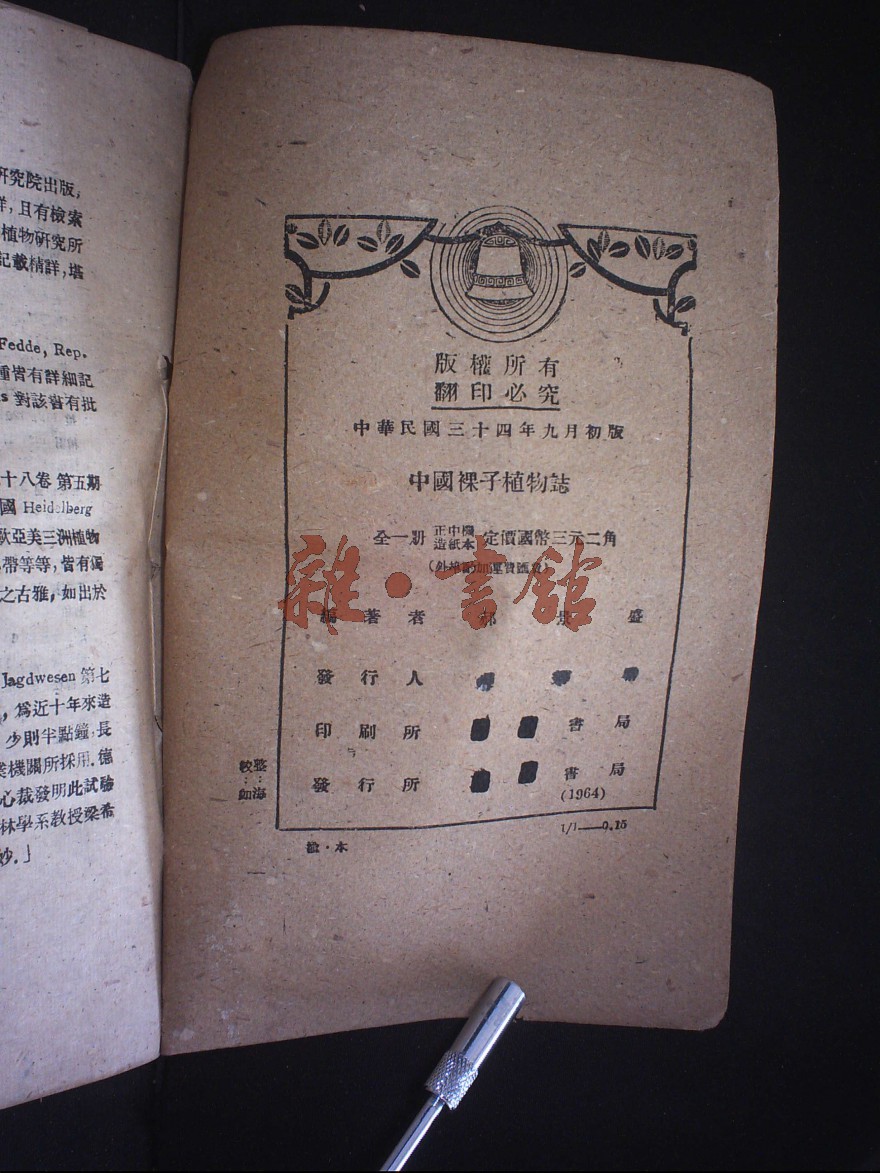 研究院出版,
詳, 且有檢索
植物研究所
記載精詳, 堪
Fedde, Rep.
種皆有詳細記
s 對該省有批
十八卷 第五期
國 Heidelberg
歐亞美三洲植物
帶等等, 皆有獨
之古雅, 如出於
Jagdwesen 第七
, 為近十年來造
少則半點鐘, 長
業機關所採用. 德
心裁發明此試驗
林學系教授梁希
妙.」
版權所有
翻印必究
中華民國三十四年九月初版
中國裸子植物誌
全一册 正中機造紙本 定價國幣三元二角
(外埠酌加運費匯費)
雜·書館
編著者 郝景盛
發行人
印刷所 書局
發行所 書局
(1964)
整
校
海
1/1——0.15
·本